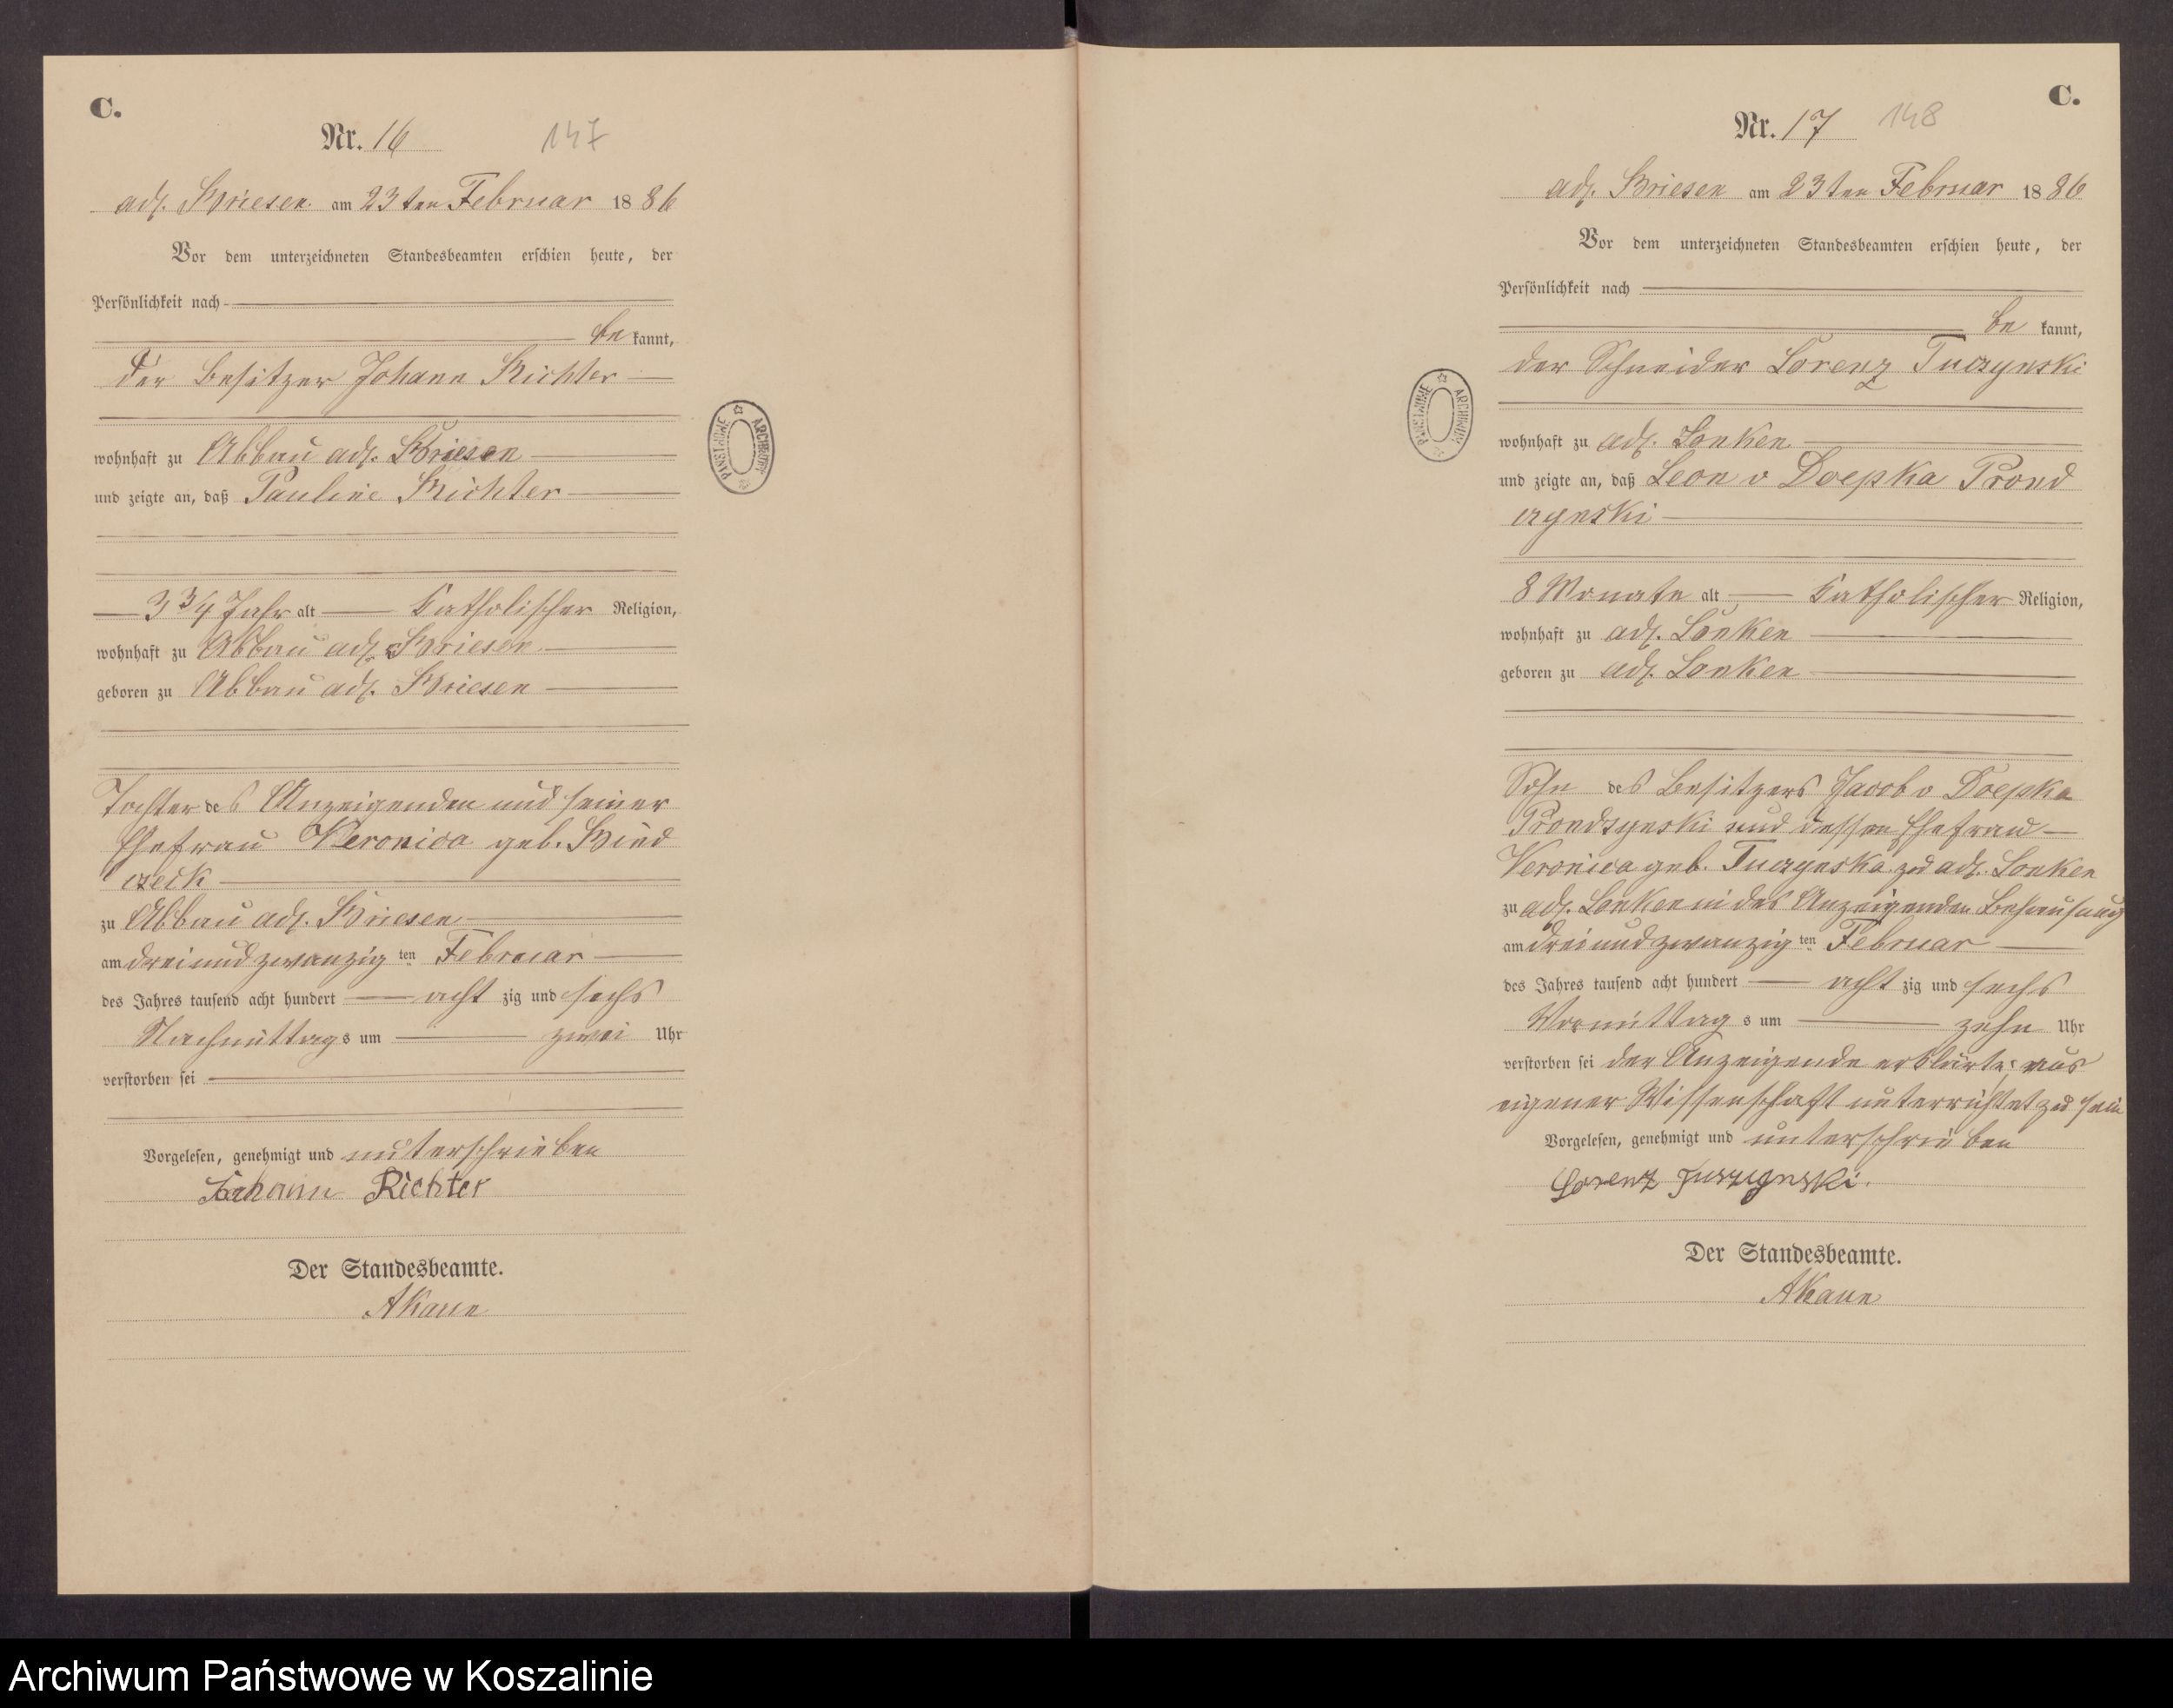 C.
Nr. 16 147
adl. Briesen am 23ten Februar 1886
Vor dem unterzeichneten Standesbeamten erschien heute, der
Persönlichkeit nach
be kannt,
der Besitzer Johann Richter
wohnhaft zu Abbau adl. Briesen
und zeigte an, daß Pauline Richter
3 3/4 Jahr alt Katholischer Religion,
wohnhaft zu Abbau adl. Briesen
geboren zu Abbau adl. Briesen
Tochter des Anzeigenden und seiner
Ehefrau Veronica geb.
czeck
zu Abbau adl. Briesen
am dreiundzwanzig ten Februar
des Jahres tausend acht hundert acht zig und sechs
Nachmittags um zwei Uhr
verstorben sei
Vorgelesen, genehmigt und unterschrieben
Johann Richter
Der Standesbeamte.
PAŃSTWOWE ARCHIWUM
C.
Nr. 17 148
adl. Briesen am 23ten Februar 1886
Vor dem unterzeichneten Standesbeamten erschien heute, der
Persönlichkeit nach
be kannt,
der Schneider Lorenz Tuczynski
wohnhaft zu adl. Lonken
und zeigte an, daß Leon v Doepka Prond
czynski
8 Monate alt Katholischer Religion,
wohnhaft zu adl. Lonken
geboren zu adl. Lonken
Sohn des Besitzers Jacob v Doepka
Prondzynski und dessen Ehefrau
Veronica geb. Tuczynska zu adl. Lonken
zu adl. Lonken in des Anzeigenden Behausung
am dreiundzwanzig ten Februar
des Jahres tausend acht hundert acht zig und sechs
Vormittag s um zehn Uhr
verstorben sei der Anzeigende erklärte, aus
eigener Wissenschaft unterrichtet zu sein
Vorgelesen, genehmigt und unterschrieben
Lorenz Tuszynski.
Der Standesbeamte.
PAŃSTWOWE ARCHIWUM
Archiwum Państwowe w Koszalinie